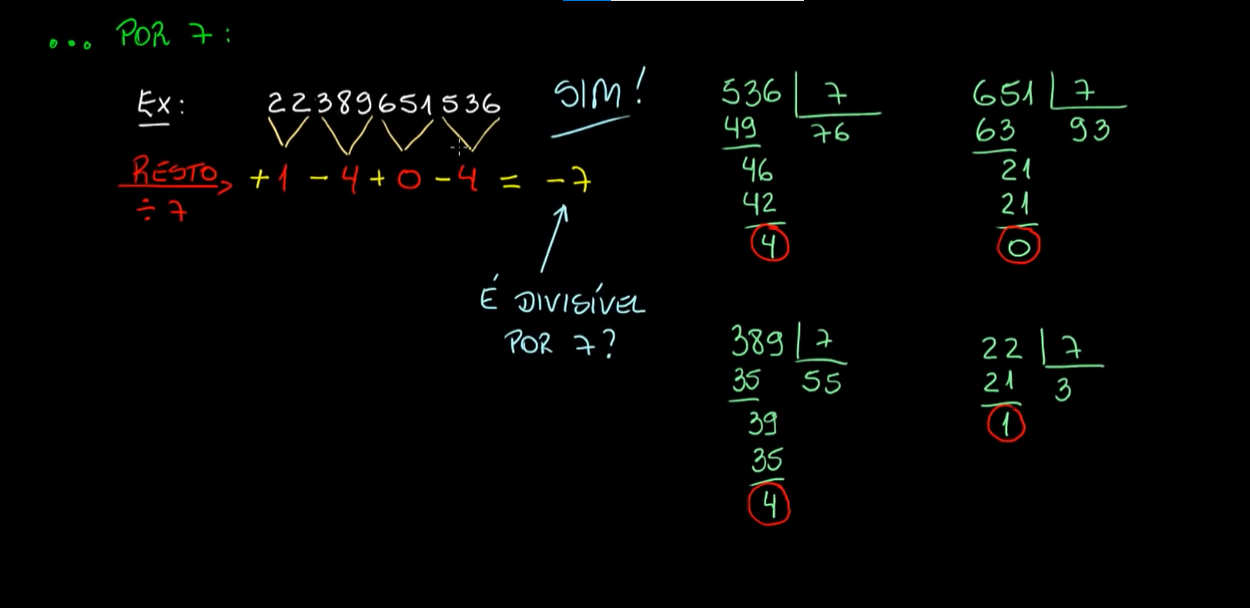 ... POR 7:
Ex: 22389651536 SIM!
RESTO ÷ 7 +1 - 4 + 0 - 4 = -7
É DIVISÍVEL
POR 7?
536 7
49 76
46
42
4
651 7
63 93
21
21
0
389 7
35 55
39
35
4
22 7
21 3
1